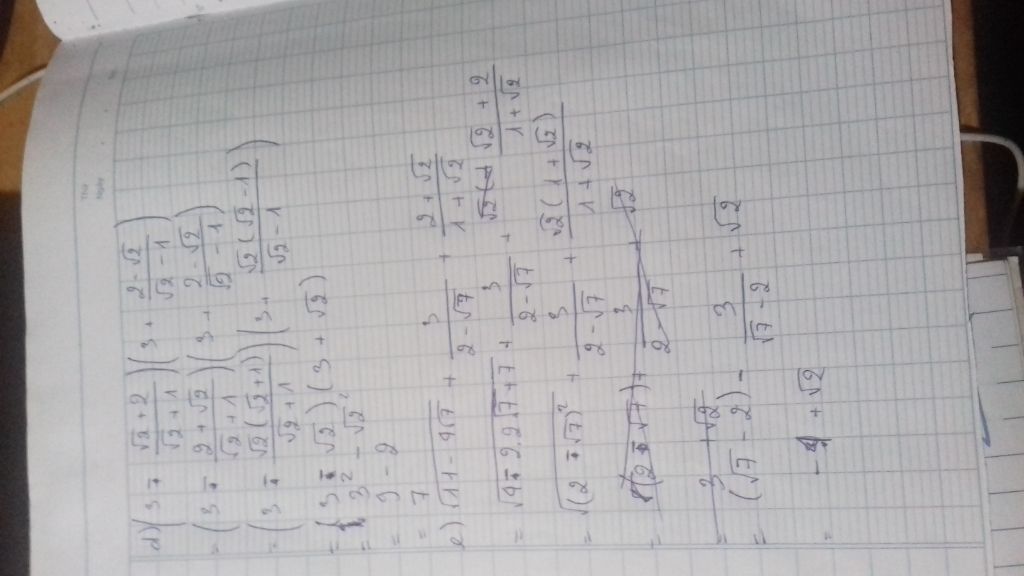 d) (3 - (√2 + 2)/(√2 + 1))(3 + (2 - √2)/(√2 - 1))
= (3 - (2 + √2)/(√2 + 1))(3 + (2 - √2)/(√2 - 1))
= (3 - √2(√2 + 1)/(√2 + 1))(3 + √2(√2 - 1)/(√2 - 1))
= (3 - √2)(3 + √2)
= 3² - √2²
= 9 - 2
= 7
e) √(11 - 4√7) + 3/(2 - √7) + (2 + √2)/(1 + √2)
= √(4 - 2.2√7 + 7) + 3/(2 - √7) + (√2 + 2)/(1 + √2)
= √((2 - √7)²) + 3/(2 - √7) + √2(1 + √2)/(1 + √2)
=
= (√7 - 2) - 3/(√7 - 2) + √2
= + √2